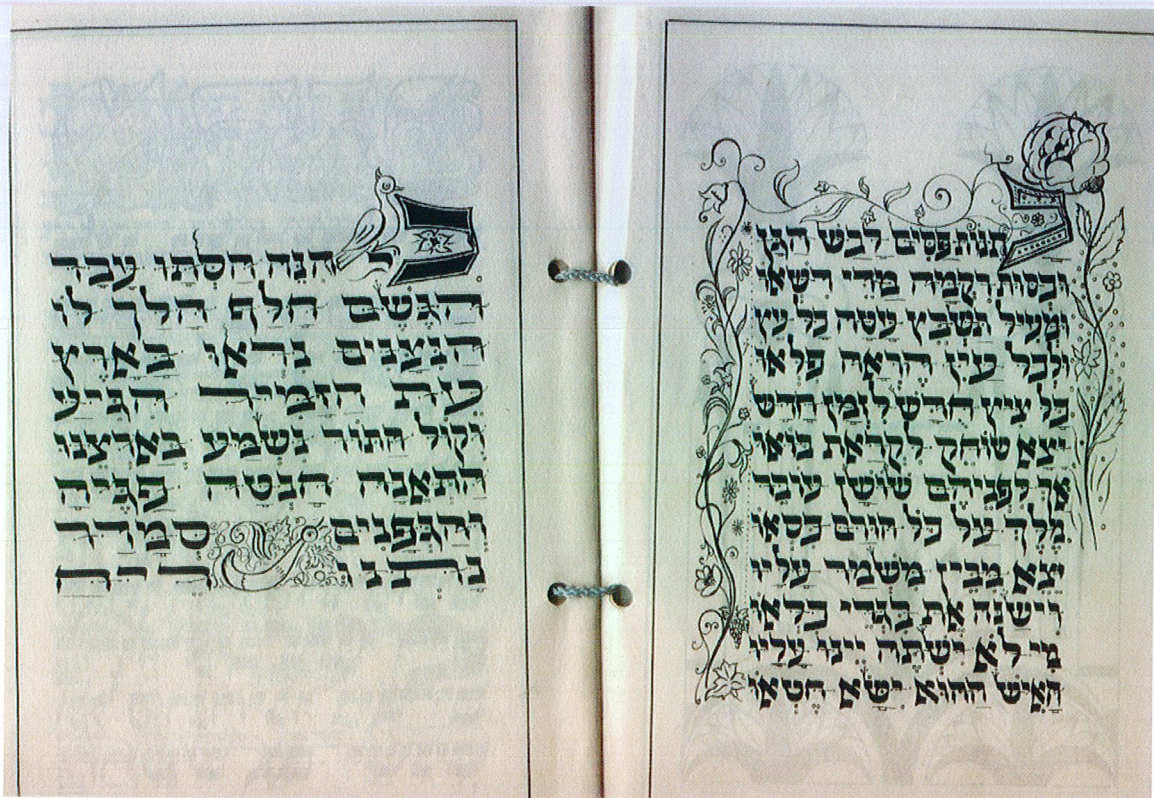 כתנות פסים לבש הגן
וכסות רקמה מדי דשאו
ומעיל תשבץ עטה כל עץ
ולכל עין הראה פלאו
כל ציץ חדש לזמן חדש
יצא שוחק לקראת בואו
אך לפניהם שושן עובר
מלך על כל הורם כסאו
יצא מבין משמר עליו
וישנה את בגדי כלאו
מי לא ישתה יינו עליו
האיש ההוא ישא חטאו
כי הנה הסתו עבר
הגשם חלף הלך לו
הנצנים נראו בארץ
עת הזמיר הגיע
וקול התור נשמע בארצנו
התאנה חנטה פגיה
והגפנים סמדר
נתנו ריח